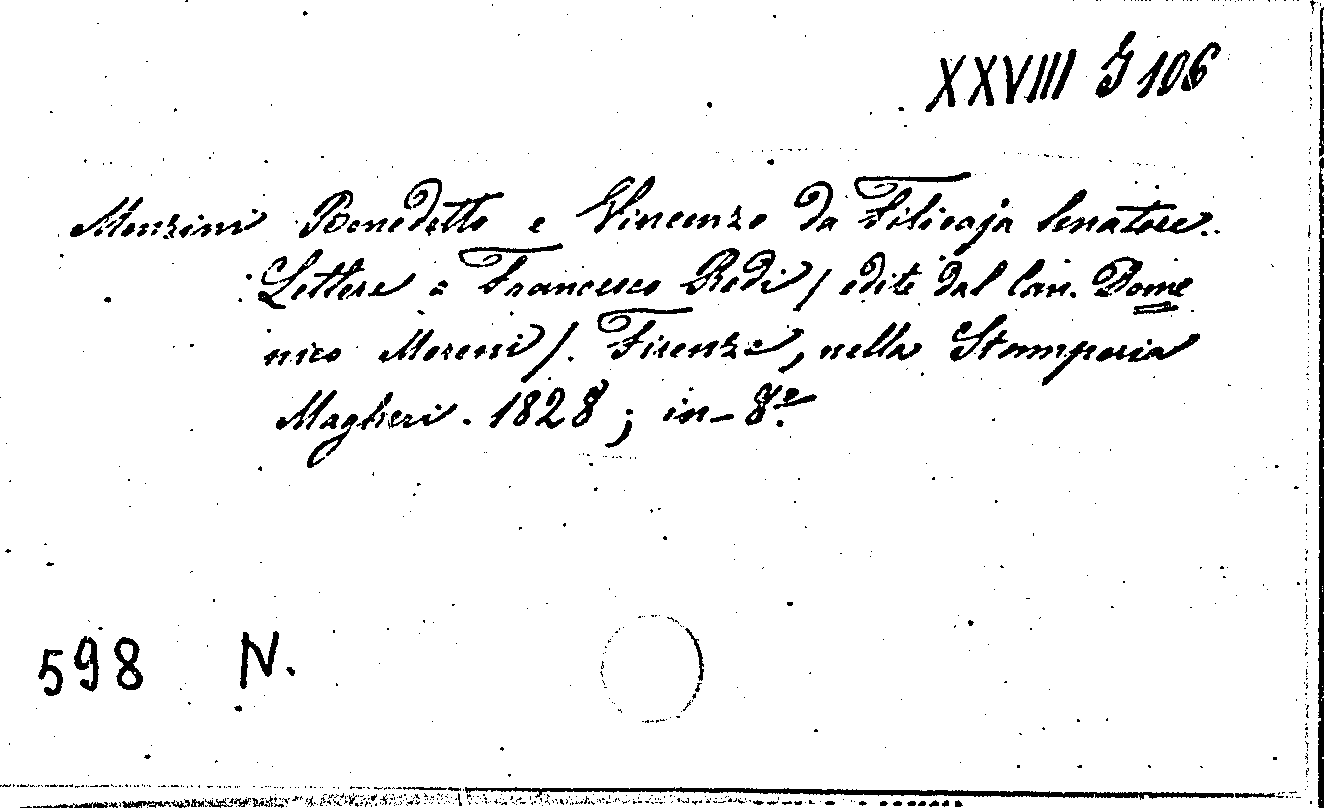 XXVIII J 106
Menzini Benedetto e Vincenzo da Filicaja Senatore.
Lettere a Francesco Redi / edite dal Can. Dome
nico Moreni /. Firenze, nella Stamperia
Magheri. 1828; in-8.º
598 N.